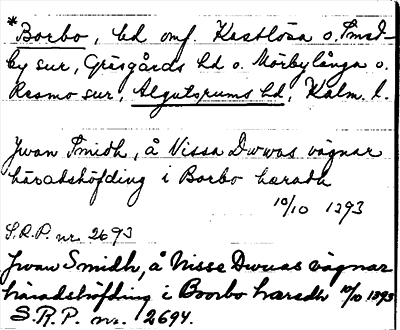 *Borbo, hd omf. Kastlösa o. Smed-
by snr, Gräsgårds hd o. Mörbylånga o.
Resmo snr, Algutsrums hd, Kalm. l.
Jwan Smidh, å Nissa Dwwas vägnar
häradshöfding i Borbo haradh
10/10 1393
S.R.P. nr. 2693
Jwan Smidh, å Nisse Dwuas vägnar
häradshöfding i Boorbo haradh 10/10 1393
S.R.P. nr. 2694.